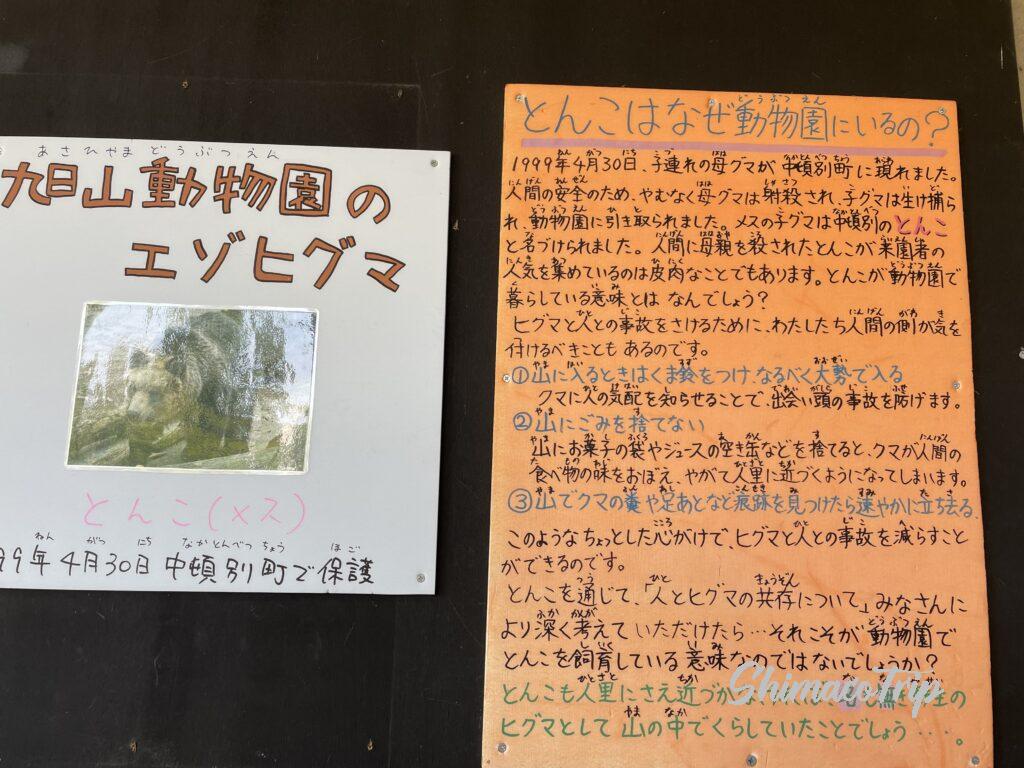 あさひやま どうぶつえん
旭山動物園の
エゾヒグマ
とんこ(メス)
ねん がつ にち なかとんべつちょう ほご
99年4月30日 中頓別町で保護
とんこはなぜ動物園にいるの?
1999年4月30日、子連れの母グマが中頓別町に現れました。
人間の安全のため、やむなく母グマは射殺され、子グマは生け捕ら
れ、動物園に引き取られました。メスの子グマは中頓別のとんこ
と名づけられました。人間に母親を殺されたとんこが来園者の
人気を集めているのは皮肉なことでもあります。とんこが動物園で
暮らしている意味とはなんでしょう?
ヒグマと人との事故をさけるために、わたしたち人間の側が気を
付けるべきこともあるのです。
①山に入るときはくま鈴をつけ、なるべく大勢で入る
クマに人の気配を知らせることで、出会い頭の事故を防げます。
②山にごみを捨てない
山にお菓子の袋やジュースの空き缶などを捨てると、クマが人間の
食べ物の味をおぼえ、やがて人里に近づくようになってしまいます。
③山でクマの糞や足あとなど痕跡を見つけたら速やかに立ち去る
このようなちょっとした心がけで、ヒグマと人との事故を減らすこと
ができるのです。
とんこを通じて、「人とヒグマの共存について」みなさんに
より深く考えていただけたら…それこそが動物園で
とんこを飼育している意味なのではないでしょうか?
とんこも人里にさえ近づか
ヒグマとして山の中でくらしていたことでしょう…。
Shimaco Trip